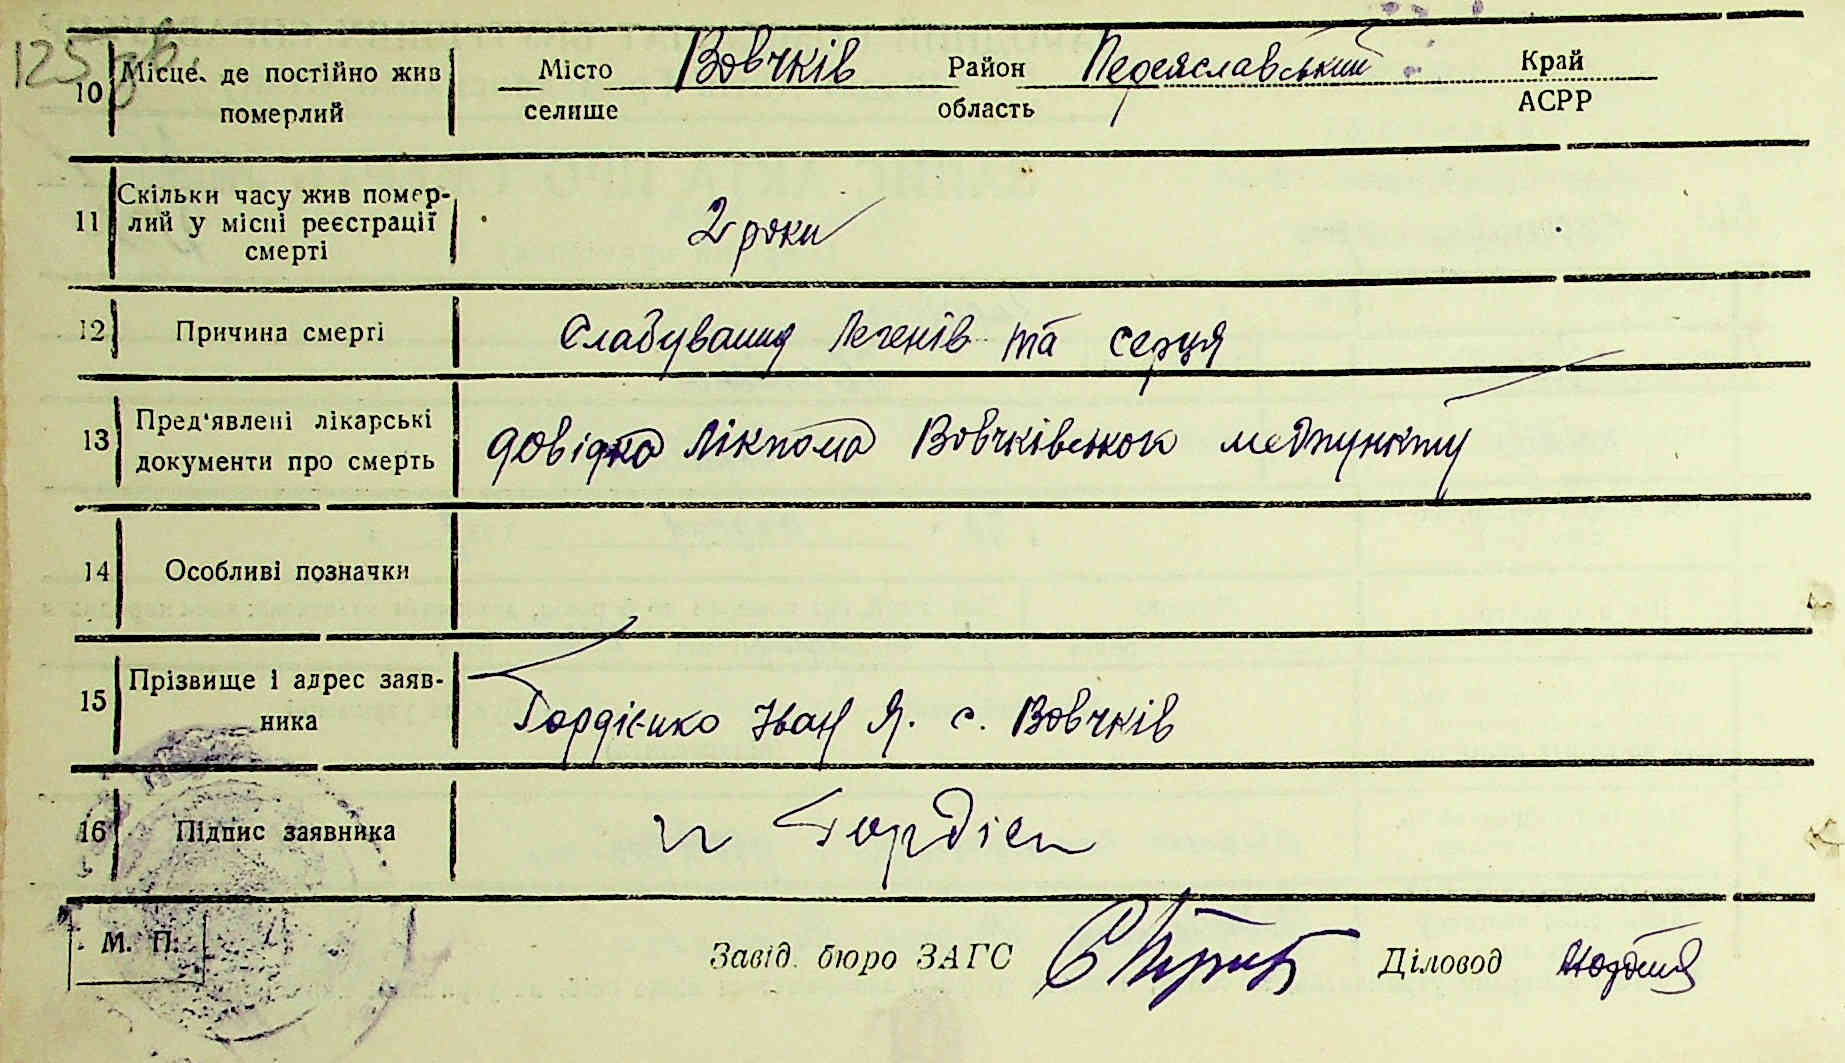 125 зв.
10 Місце, де постійно жив померлий Місто селише Вовчків Район область Переяславський Край АСРР
11 Скільки часу жив помер-
лий у місці реєстрації
смерті 2 роки
12 Причина смерті Слабування легенів та серця
13 Пред'явлені лікарські
документи про смерть довідка лікпома Вовчківського медпункту
14 Особливі позначки
15 Прізвище і адрес заяв-
ника Гордієнко Іван Я. с. Вовчків
16 Підпис заявника Гордієн
М. П. Завід. бюро ЗАГС Діловод